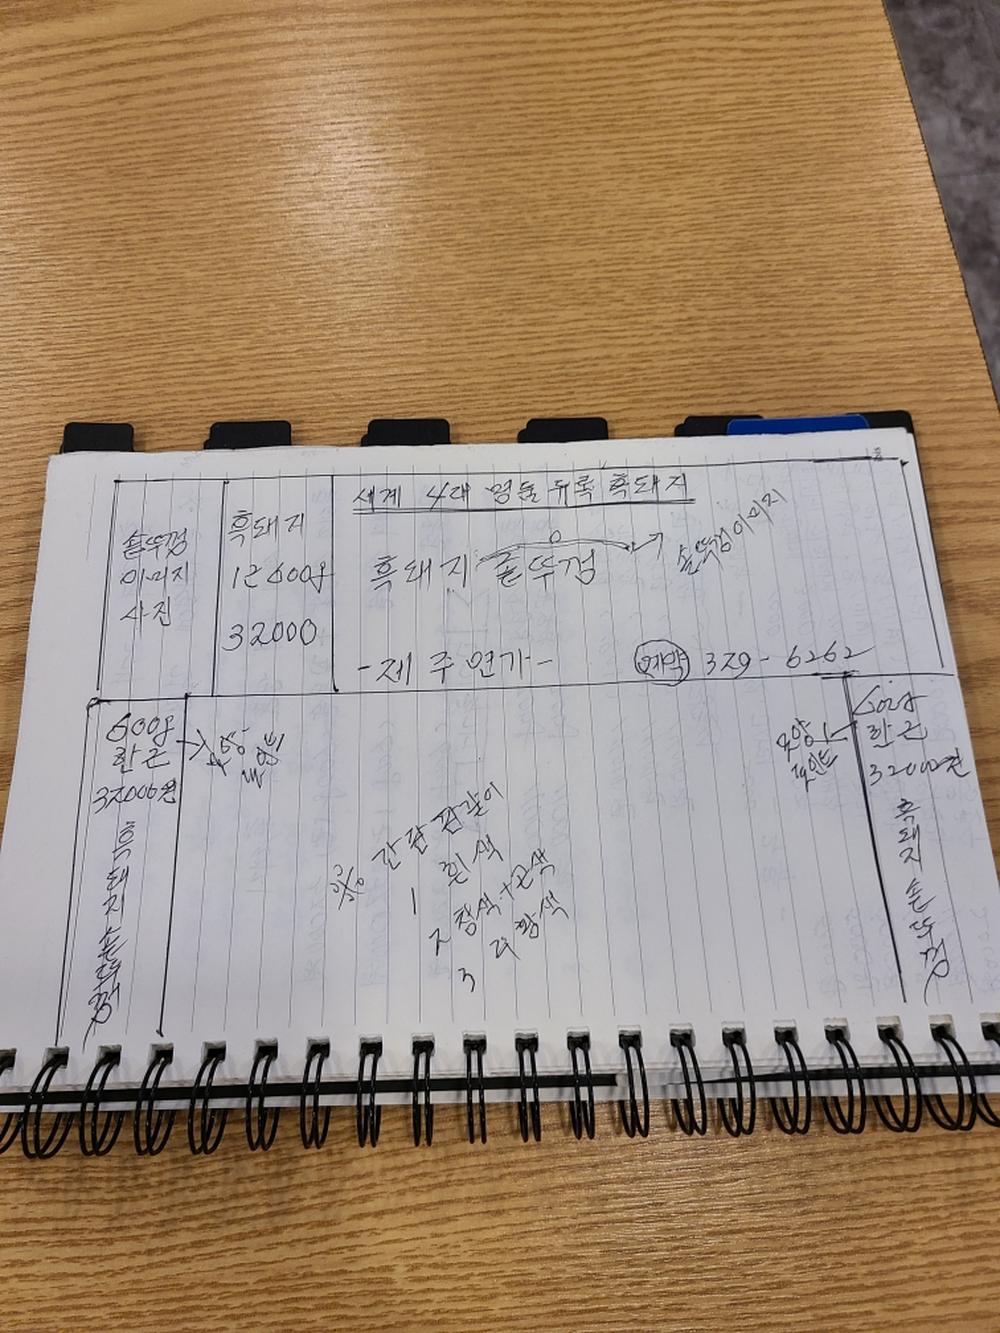 솥뚜껑
이미지
사진
흑돼지
1근 600g
32000
세계 4대 명품 듀록 흑돼지
흑돼지 솥뚜껑
솥뚜껑 이미지
-제주연가-
예약 329-6262
600g
한근
32000원
흑돼지 솥뚜껑
모양
포인트
※ 간판 색깔이
1 흰색
2 청색+곤색
3 다 황색
모양
포인트
600g
한근
32000원
흑돼지 솥뚜껑